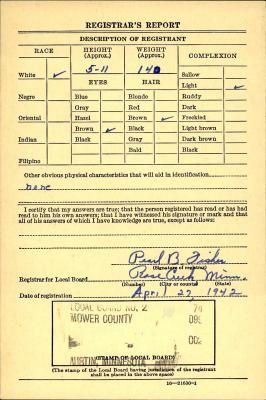 REGISTRAR'S REPORT
DESCRIPTION OF REGISTRANT
RACE HEIGHT (Approx.) WEIGHT (Approx.) COMPLEXION
White ✓ 5-11 140 Sallow
EYES HAIR Light ✓
Negro Blue Blonde Ruddy
Gray Red Dark
Oriental Hazel Brown ✓ Freckled
Brown ✓ Black Light brown
Indian Black Gray Dark brown
Bald Black
Filipino
Other obvious physical characteristics that will aid in identification
none
I certify that my answers are true; that the person registered has read or has had
read to him his own answers; that I have witnessed his signature or mark and that
all of his answers of which I have knowledge are true, except as follows:
Pearl B. Fisher
(Signature of registrar)
Registrar for Local Board Rose Creek Minn.
(Number) (City or county) (State)
Date of registration April 27, 1942
LOCAL BOARD NO. 2
MOWER COUNTY
AUSTIN, MINNESOTA
(STAMP OF LOCAL BOARD)
(The stamp of the Local Board having jurisdiction of the registrant
shall be placed in the above space)
16—21630-1